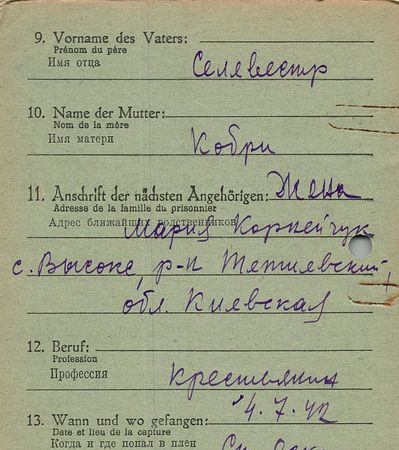 9. Vorname des Vaters:
Prénom du père
Имя отца
Селевестр
10. Name der Mutter:
Nom de la mère
Имя матери
Кобри
11. Anschrift der nächsten Angehörigen: Жена
Adresse de la famille du prisonnier
Адрес ближайших родственников
Мария Корнейчук
с. Высоке, р-н Тетиевский,
обл. Киевская
12. Beruf:
Profession
Профессия
крестьянин
4.7.42
13. Wann und wo gefangen:
Date et lieu de la capture
Когда и где попал в плен